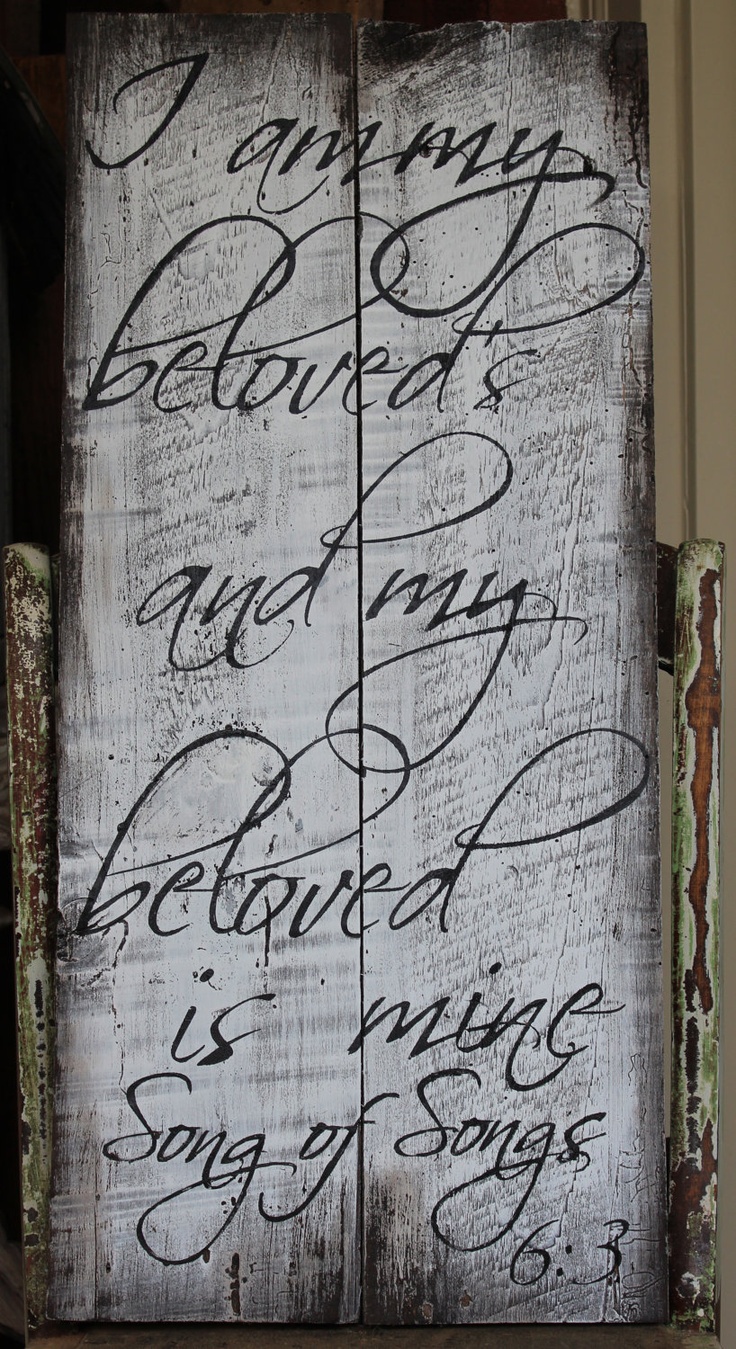 I am my
beloved's
and my
beloved
is mine
Song of Songs
6:3